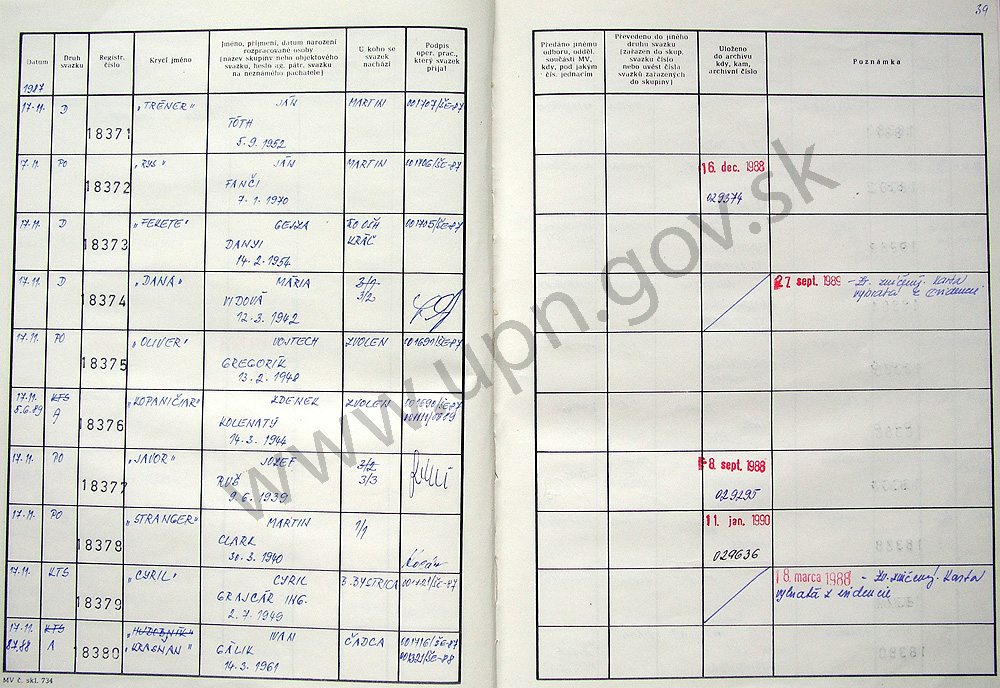 39
Datum
Druh svazku
Registr. číslo
Krycí jméno
Jméno, příjmení, datum narození
rozpracované osoby
(název skupiny nebo objektového
svazku, heslo ag. pátr. svazku
na neznámého pachatele)
U koho se
svazek
nachází
Podpis
oper. prac.,
který svazek
přijal
Předáno jinému
odboru, odděl.
součásti MV,
kdy, pod jakým
čís. jednacím
Převedeno do jiného
druhu svazku
(zařazen do skup.
svazku číslo
nebo uvést čísla
svazků zařazených
do skupiny)
Uloženo
do archivu
kdy, kam,
archivní číslo
Poznámka
1987
17.11. D 18371 "TRÉNER" JÁN MARTIN 001707/ŠE-87
TÓTH
5.9.1952
7.11. PO 18372 "RYS" JÁN MARTIN 001706/ŠE-87 16. dec. 1988
FANČI 029374
7.1.1970
17.11. D 18373 "FEKETE" GEJZA 001705/ŠE-87
DANYI KRÁČ
14.2.1954
17.11. D 18374 "DANA" MÁRIA 3/1 27 sept. 1989 - Zv. zničený. Karta
VIDOVÁ 3/2 vybratá z evidencie
12.3.1942
17.11. PO 18375 "OLIVER" VOJTECH ZVOLEN 001691/ŠE-87
GREGORÍK
13.2.1948
17.11. KTS 18376 "KOPANIČIAR" ZDENEK ZVOLEN 001690/ŠE-87
5.6.89 A KOLENATÝ
14.3.1944
17.11. PO 18377 "JAVOR" JOZEF 3/2 8. sept. 1988
RUŠ 3/3 029295
9.6.1939
17.11. PO 18378 "STRANGER" MARTIN 1/1 11. jan. 1990
CLARK 029636
30.3.1940
17.11. KTS 18379 "CYRIL" CYRIL B. BYSTRICA 18. marca 1988 - Zv. zničený. Karta
GRAJCÁR ING. vybratá z evidencie
2.7.1949
17.11. KTS 18380 "HUDOBNÍK" IVAN ČADCA 001716/ŠE-87
8.7.88 A "KRASŇAN" GÁLIK 001321/ŠE-88
14.3.1961
MV č. skl. 734
www.upn.gov.sk